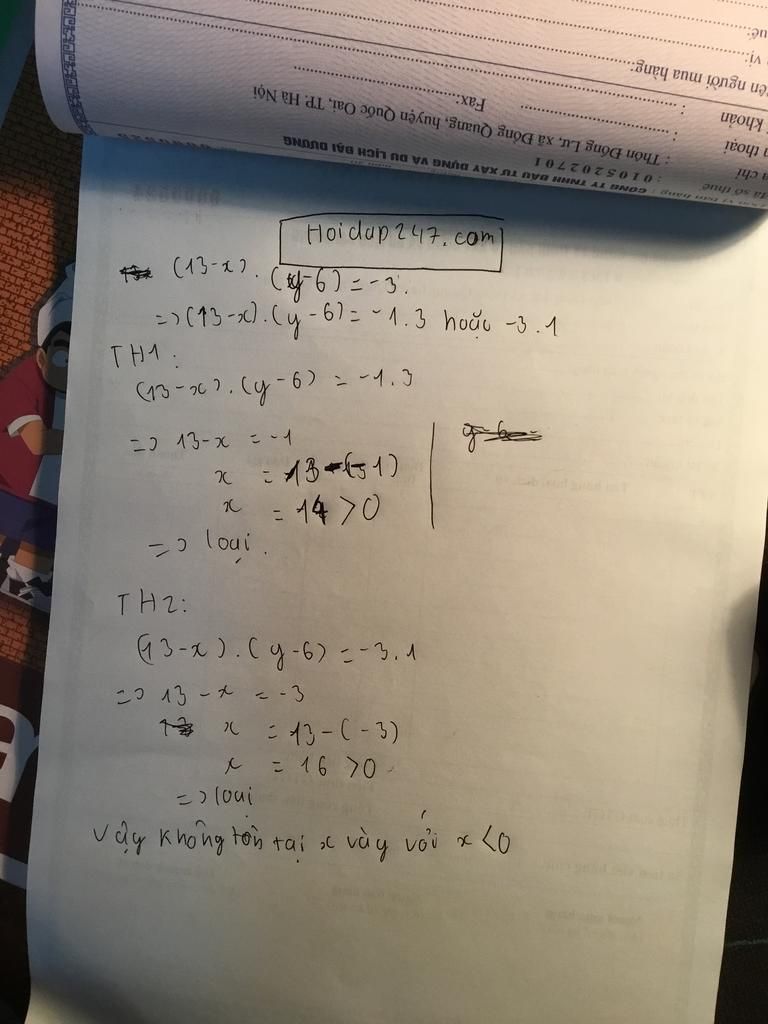 CÔNG TY TNHH ĐẦU TƯ XÂY DỰNG VÀ DU LỊCH ĐẠI DƯƠNG
: 0105202701
: Thôn Đồng Lư, xã Đồng Quang, huyện Quốc Oai, TP. Hà Nội
Fax:
người mua hàng:
Hoidap247.com
(13-x).(y-6)=-3.
=>(13-x).(y-6)=-1.3 hoặc -3.1
TH1:
(13-x).(y-6)=-1.3
=> 13-x = -1
x = 13-(-1)
x = 14 >0
=> loại.
TH2:
(13-x).(y-6)=-3.1
=> 13-x = -3
x = 13-(-3)
x = 16 >0
=> loại
Vậy không tồn tại x vày với x <0